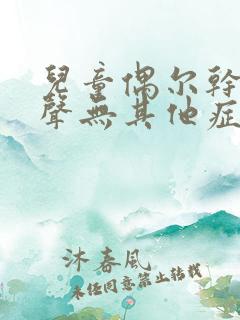 兒童偶尔幹
聲無其他症
沐春風
未經同意禁止轉載